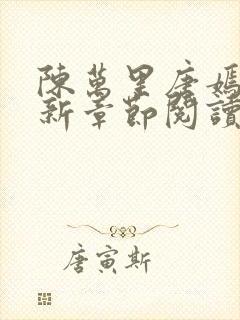 陳萬里唐嫣
新章節閱讀
唐寅斯